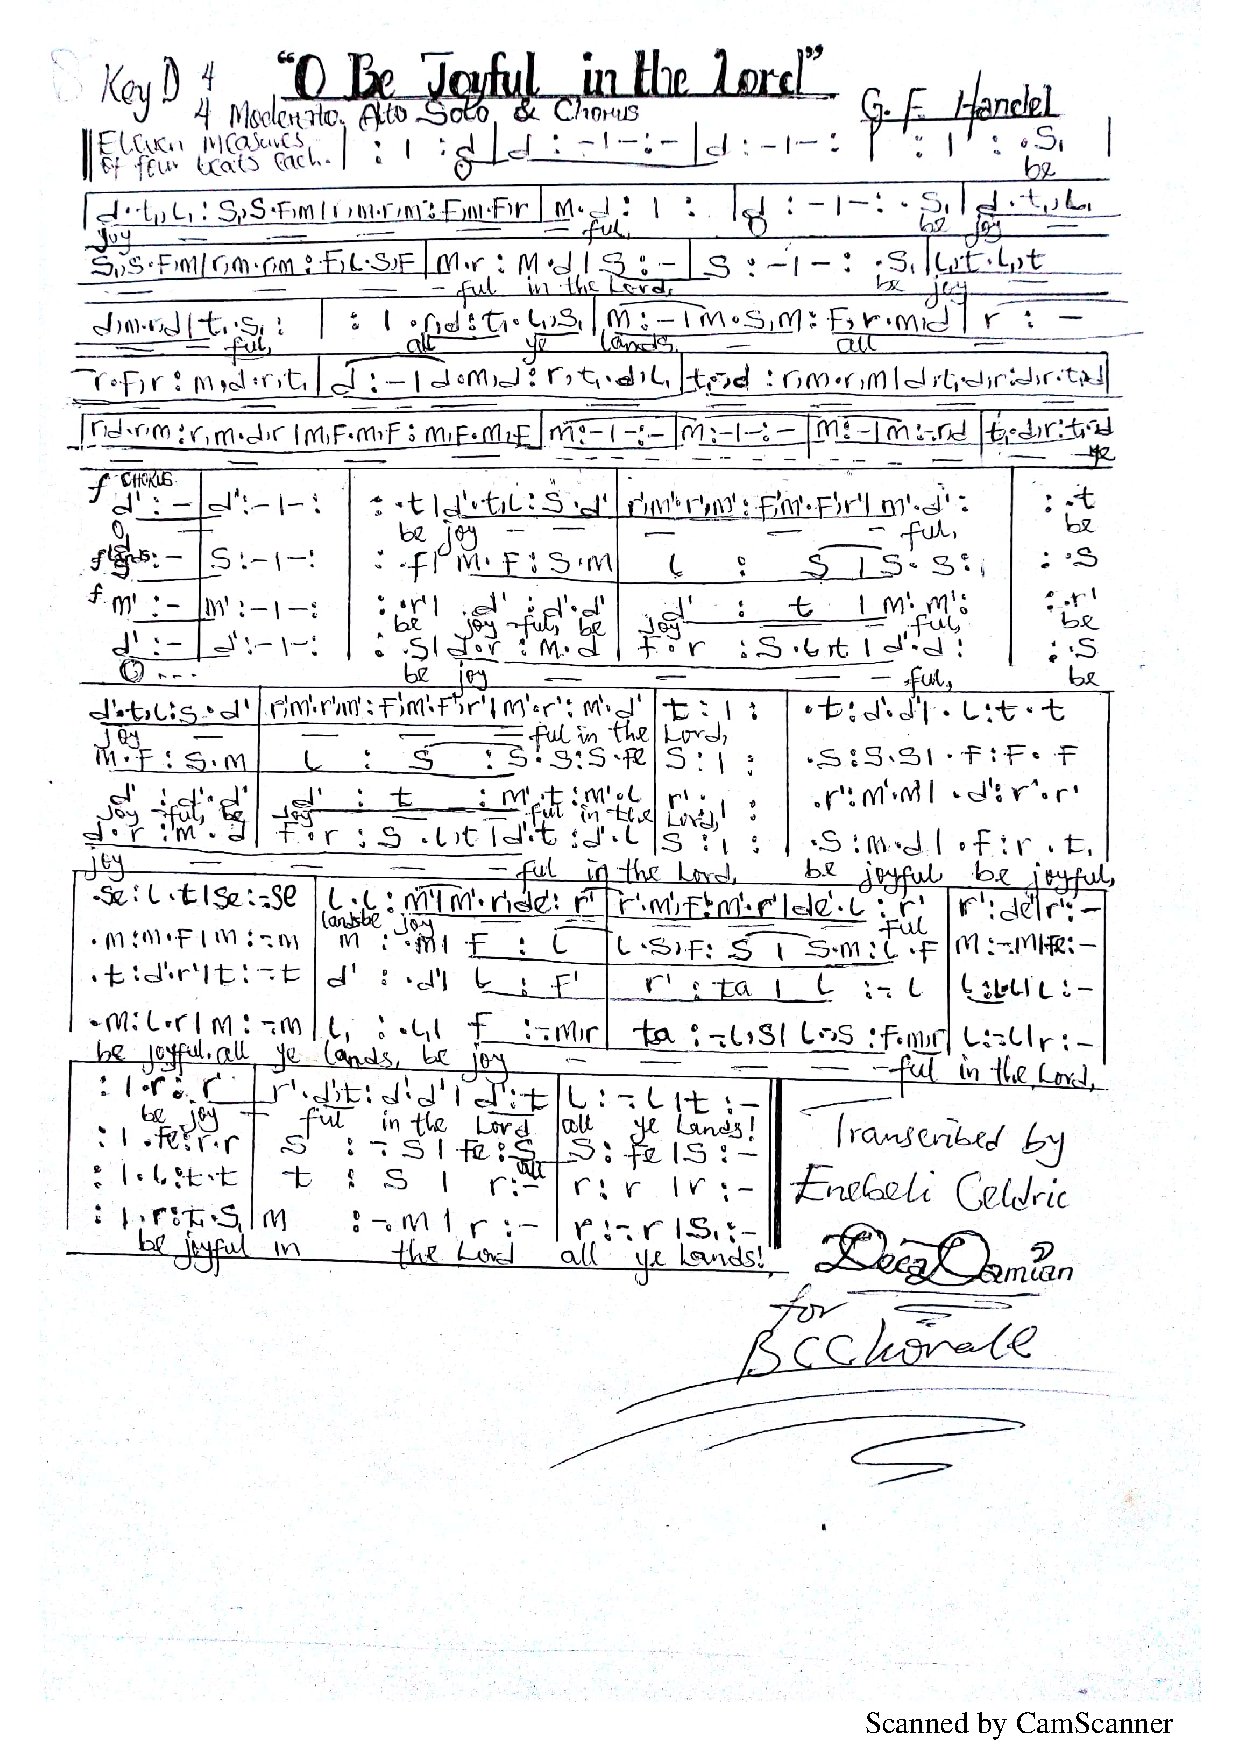 Key D 4 "O Be Joyful in the Lord"
4 Moderato. Alto Solo & Chorus G. F. Handel
Eleven measures
of four beats each. | : | : d | d : - | - : - | d : - | - : | : | : . s, |
O be
| d . t, , l, : s, , s . f , m | r , m . r , m : f , m . f , r | m . d : | : | d : - | - : . s, | d . t, , l,
joy - - - ful, O be joy
s, , s . f , m | r , m . r , m : f , l . s , f | m . r : m . d | s : - | s : - | - : . s, | l, , t . l, , t
- ful in the Lord, be joy
d , m . r , d | t, . s, : | : | . r , d : t, . l, , s, | m : - | m . s , m : f , r . m , d | r : -
- ful, all ye lands, all
r . f , r : m , d . r , t, | d : - | d . m , d : r , t, . d , l, | t, . , d : r , m . r , m | d , t, . d , r : d , r . t, , d
r , d . r , m : r , m . d , r | m , f . m , f : m , f . m , f | m : - | - : - | m : - | - : - | m : - | m : - . r , d | t, . d , r : t, , d
ye
f CHORUS
d' : - | d' : - | - : | : . t | d' . t , l : s . d' | r' , m' . r' , m' : f' , m' . f' , r' | m' . d' : | : . t
O be joy - - - ful, be
f s : - | s : - | - : | : . f | m . f : s . m | l : s | s . s : | : . s
f m' : - | m' : - | - : | : . r' | . d' : d' . d' | d' : t | m' . m' : | : . r'
be joy - ful, be joy - ful, be
d' : - | d' : - | - : | : . s | d . r : m . d | f . r : s . l , t | d' . d' : | : . s
O . . . be joy - - - ful, be
d' . t , l : s . d' | r' , m' . r' , m' : f' , m' . f' , r' | m' . r' : m' . d' | t : | : | . t : d' . d' | . l : t . t
joy - - - ful in the Lord,
m . f : s . m | l : s : s . s : s . fe | s : | : | . s : s . s | . f : f . f
d' : d' . d' | d' : t : m' . t : m' . l | r' . : | : | . r' : m' . m' | . d' : r' . r'
joy - ful, be joy - ful in the Lord,
d . r : m . d | f . r : s . l , t | d' . t : d' . l | s : | : | . s : m . d | . f : r . t,
joy - - - ful in the Lord, be joyful be joyful,
. se : l . t | se : - . se | l . l : m' | m' . r' , de' : r' | r' . m' , f' : m' . r' | de' . l : r' | r' : de' | r' : -
lands be joy ful
. m : m . f | m : - . m | m : . m | f : l | l . s , f : s | s . m : l . f | m : - . m | fe : -
. t : d' . r' | t : - . t | d' : . d' | l : f' | r' : ta | l : - . l | l : l . l | l : -
. m : l . r | m : - . m | l, : . l, | f : - . m , r | ta : - . l , s | l . - . s : f . m , r | l : - . l | r : -
be joyful, all ye lands, be joy - - - - ful in the Lord,
: | . r' : . r' | r' . d' , t : d' . d' | d' : t | l : - . l | t : -
be joy - ful in the Lord all ye lands!
: | . fe : r . r | s : - . s | fe : s | s : fe | s : -
all
: | . l : t . t | t : s | r : - | r : r | r : -
: | . r : t, . s, | m : - . m | r : - | r : - . r | s, : -
be joyful in the Lord all ye lands!
Transcribed by
Enebeli Celdric
Deca Damian
for
BCChorale
Scanned by CamScanner